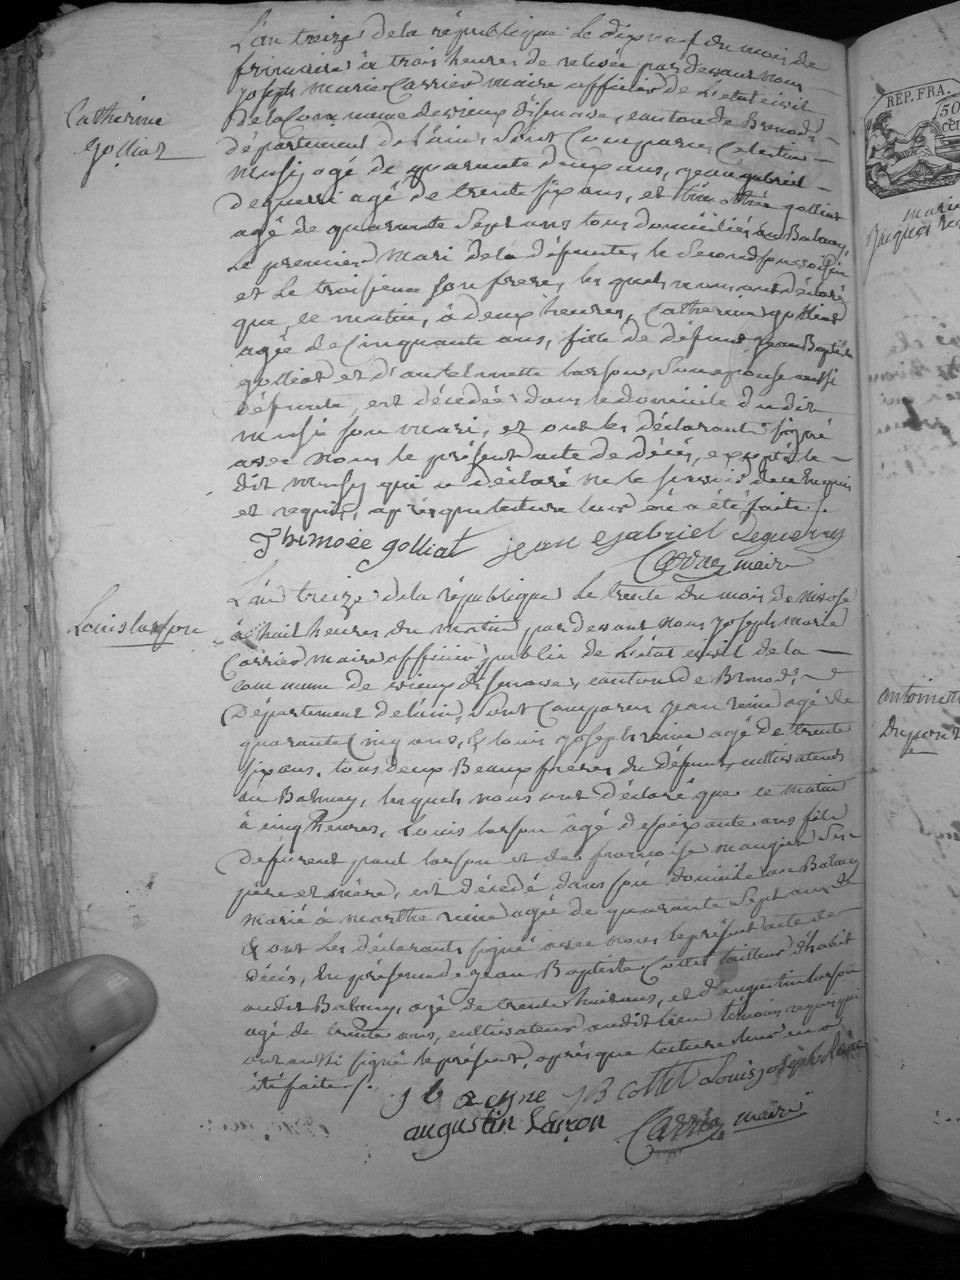 L'an treize de la république le dix neuf du mois de
frimaire à trois heures de relevée par devant nous
joseph marie Carrier maire officier de l'état civil
de la Commune de vieux disenave, canton de Brenod,
département de l'ain, sont Comparus Celestin
musy agé de quarante deux ans, jean gabriel
deguerri agé de trente six ans, et thimothée golliat
agé de quarante sept ans tous domiciliés au Balmey,
le premier mari de la défunte, le second son voisin
et le troisieme son frere, lesquels nous ont déclaré
que, ce matin, à deux heures, Catherine golliat
agée de Cinquante ans, fille de défunt jean Baptiste
golliat et d'antelmette larson, son epouse aussi
défunte, est décédée dans le domicile du dit
musi son mari, et ont les déclarants signé
avec nous le présent acte de décès, excepté le
dit musy qui a déclaré ne le savoir de ce enquis
et requis, après que lecture leur en a été faite.
Thimoée golliat jean gabriel deguerry
Carrier maire
Catherine
golliat
L'an treize de la république le trente du mois de nivose
à huit heures du matin, par devant nous joseph marie
Carrier maire officier public de l'état civil de la
commune de vieux disenave, canton de Brenod,
Département de l'ain, sont Comparus jean reine agé de
quarante Cinq ans, & louis joseph reine agé de trente
six ans, tous deux Beaux freres du défunt, cultivateurs
au Balmey, lesquels nous ont déclaré que ce matin
à cinq heures, Louis larson âgé de soixante ans fils
de furent paul larson et de françoise mangier ses
père et mère, est décédé dans son domicile au Balmey
marié à marthe reine agée de quarante sept ans
& ont les déclarants signé avec nous le présent acte de
décès, en présence de jean Baptiste Cottet tailleur d'habit
audit Balmey, agé de trente huit ans, et d'augustin larson
agé de trente ans, cultivateur audit lieu témoins requis qui
ont aussi signé le présent, après que lecture leur en a
été faite /.
J B Cottet Louis joseph Reyne
augustin Larçon Carrier maire
Louis larson
REP. FRA.
50
marie
antoinette
dupont